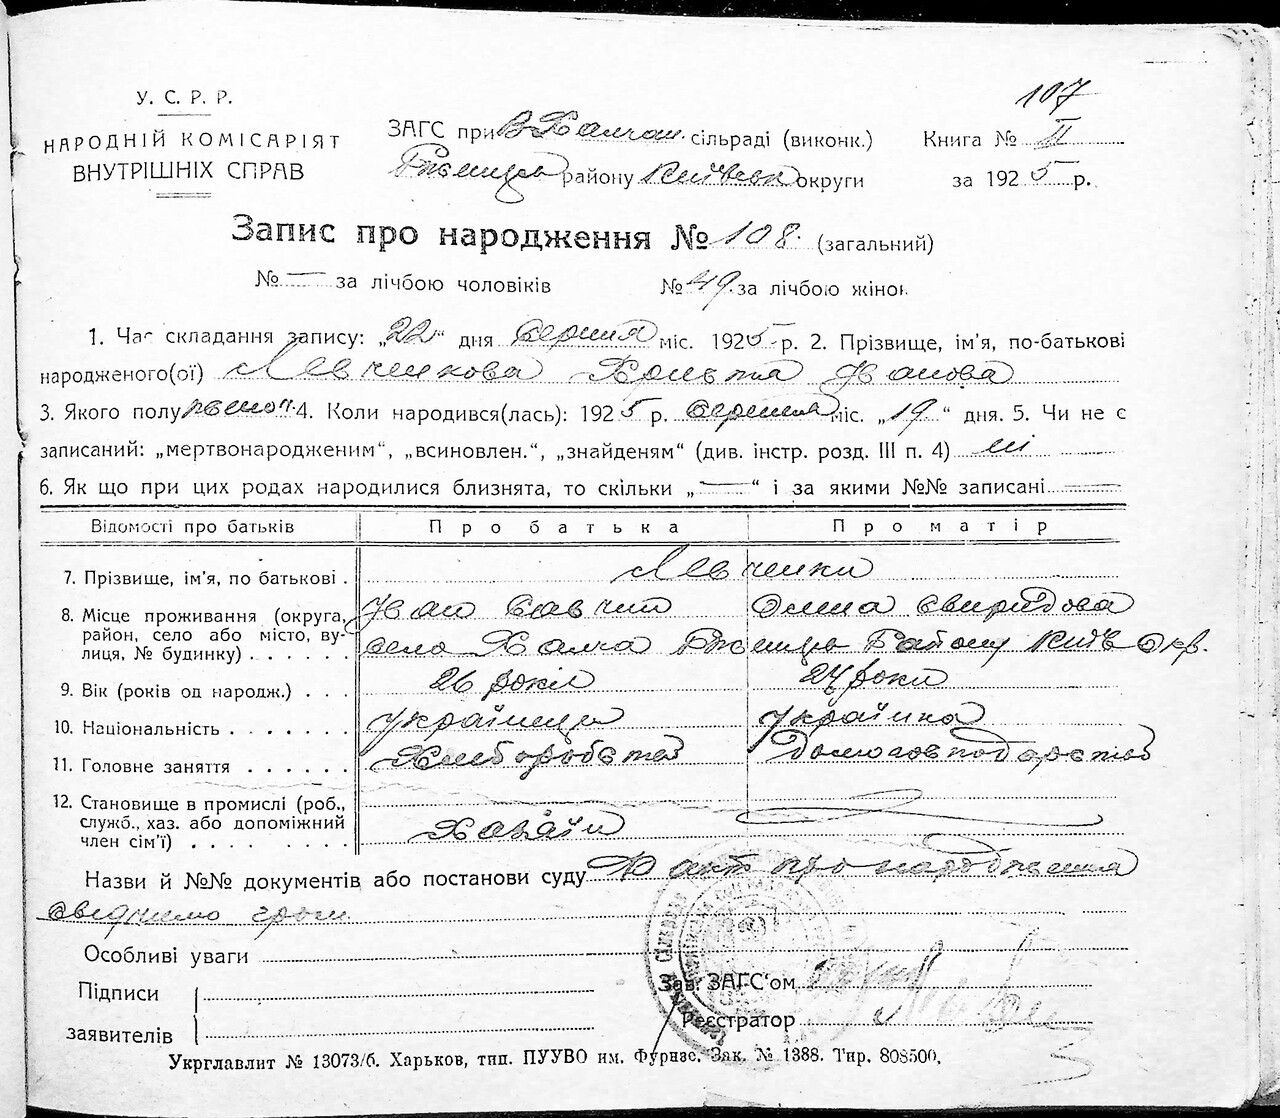 107
У. С. Р. Р.
НАРОДНІЙ КОМІСАРІЯТ
ВНУТРІШНІХ СПРАВ
ЗАГС при В Халчан. сільраді (виконк.)
Ржищів району Київськ округи
Книга № II
за 1925 р.
Запис про народження № 108. (загальний)
№ — за лічбою чоловіків № 49. за лічбою жінок
1. Час складання запису: „22“ дня серпня міс. 1925 р. 2. Прізвище, ім'я, по-батькові
народженого(ої) Левченкова Христя Іванова
3. Якого полу жіноч. 4. Коли народився(лась): 1925 р. серпня міс. „19.“ дня. 5. Чи не є
записаний: „мертвонародженим“, „всиновлен.“, „знайденям“ (див. інстр. розд. III п. 4) ні
6. Як що при цих родах народилися близнята, то скільки „—“ і за якими №№ записані
Відомості про батьків Про батька Про матір
7. Прізвище, ім'я, по батькові . Левченки
8. Місце проживання (округа, Іван Савчин Олена Свиридова
район, село або місто, ву-
лиця, № будинку) . . . . . . село Халча Ржищів Району Київ Окр.
9. Вік (років од народж.) . . . 26 років 24 роки
10. Національність . . . . . . . українець українка
11. Головне заняття . . . . . . Хліборобство домогосподарство
12. Становище в промислі (роб.,
служб., хаз. або допоміжний Хазяїн
член сім'ї) . . . . . . . . .
Назви й №№ документів або постанови суду Факт про народження
свідчимо
Особливі уваги
Підписи
заявителів
Зав. ЗАГС'ом
Реєстратор
Укрглавлит № 13073/б. Харьков, тип. ПУУВО им. Фрунзе. Зак. № 1388. Тир. 808500.